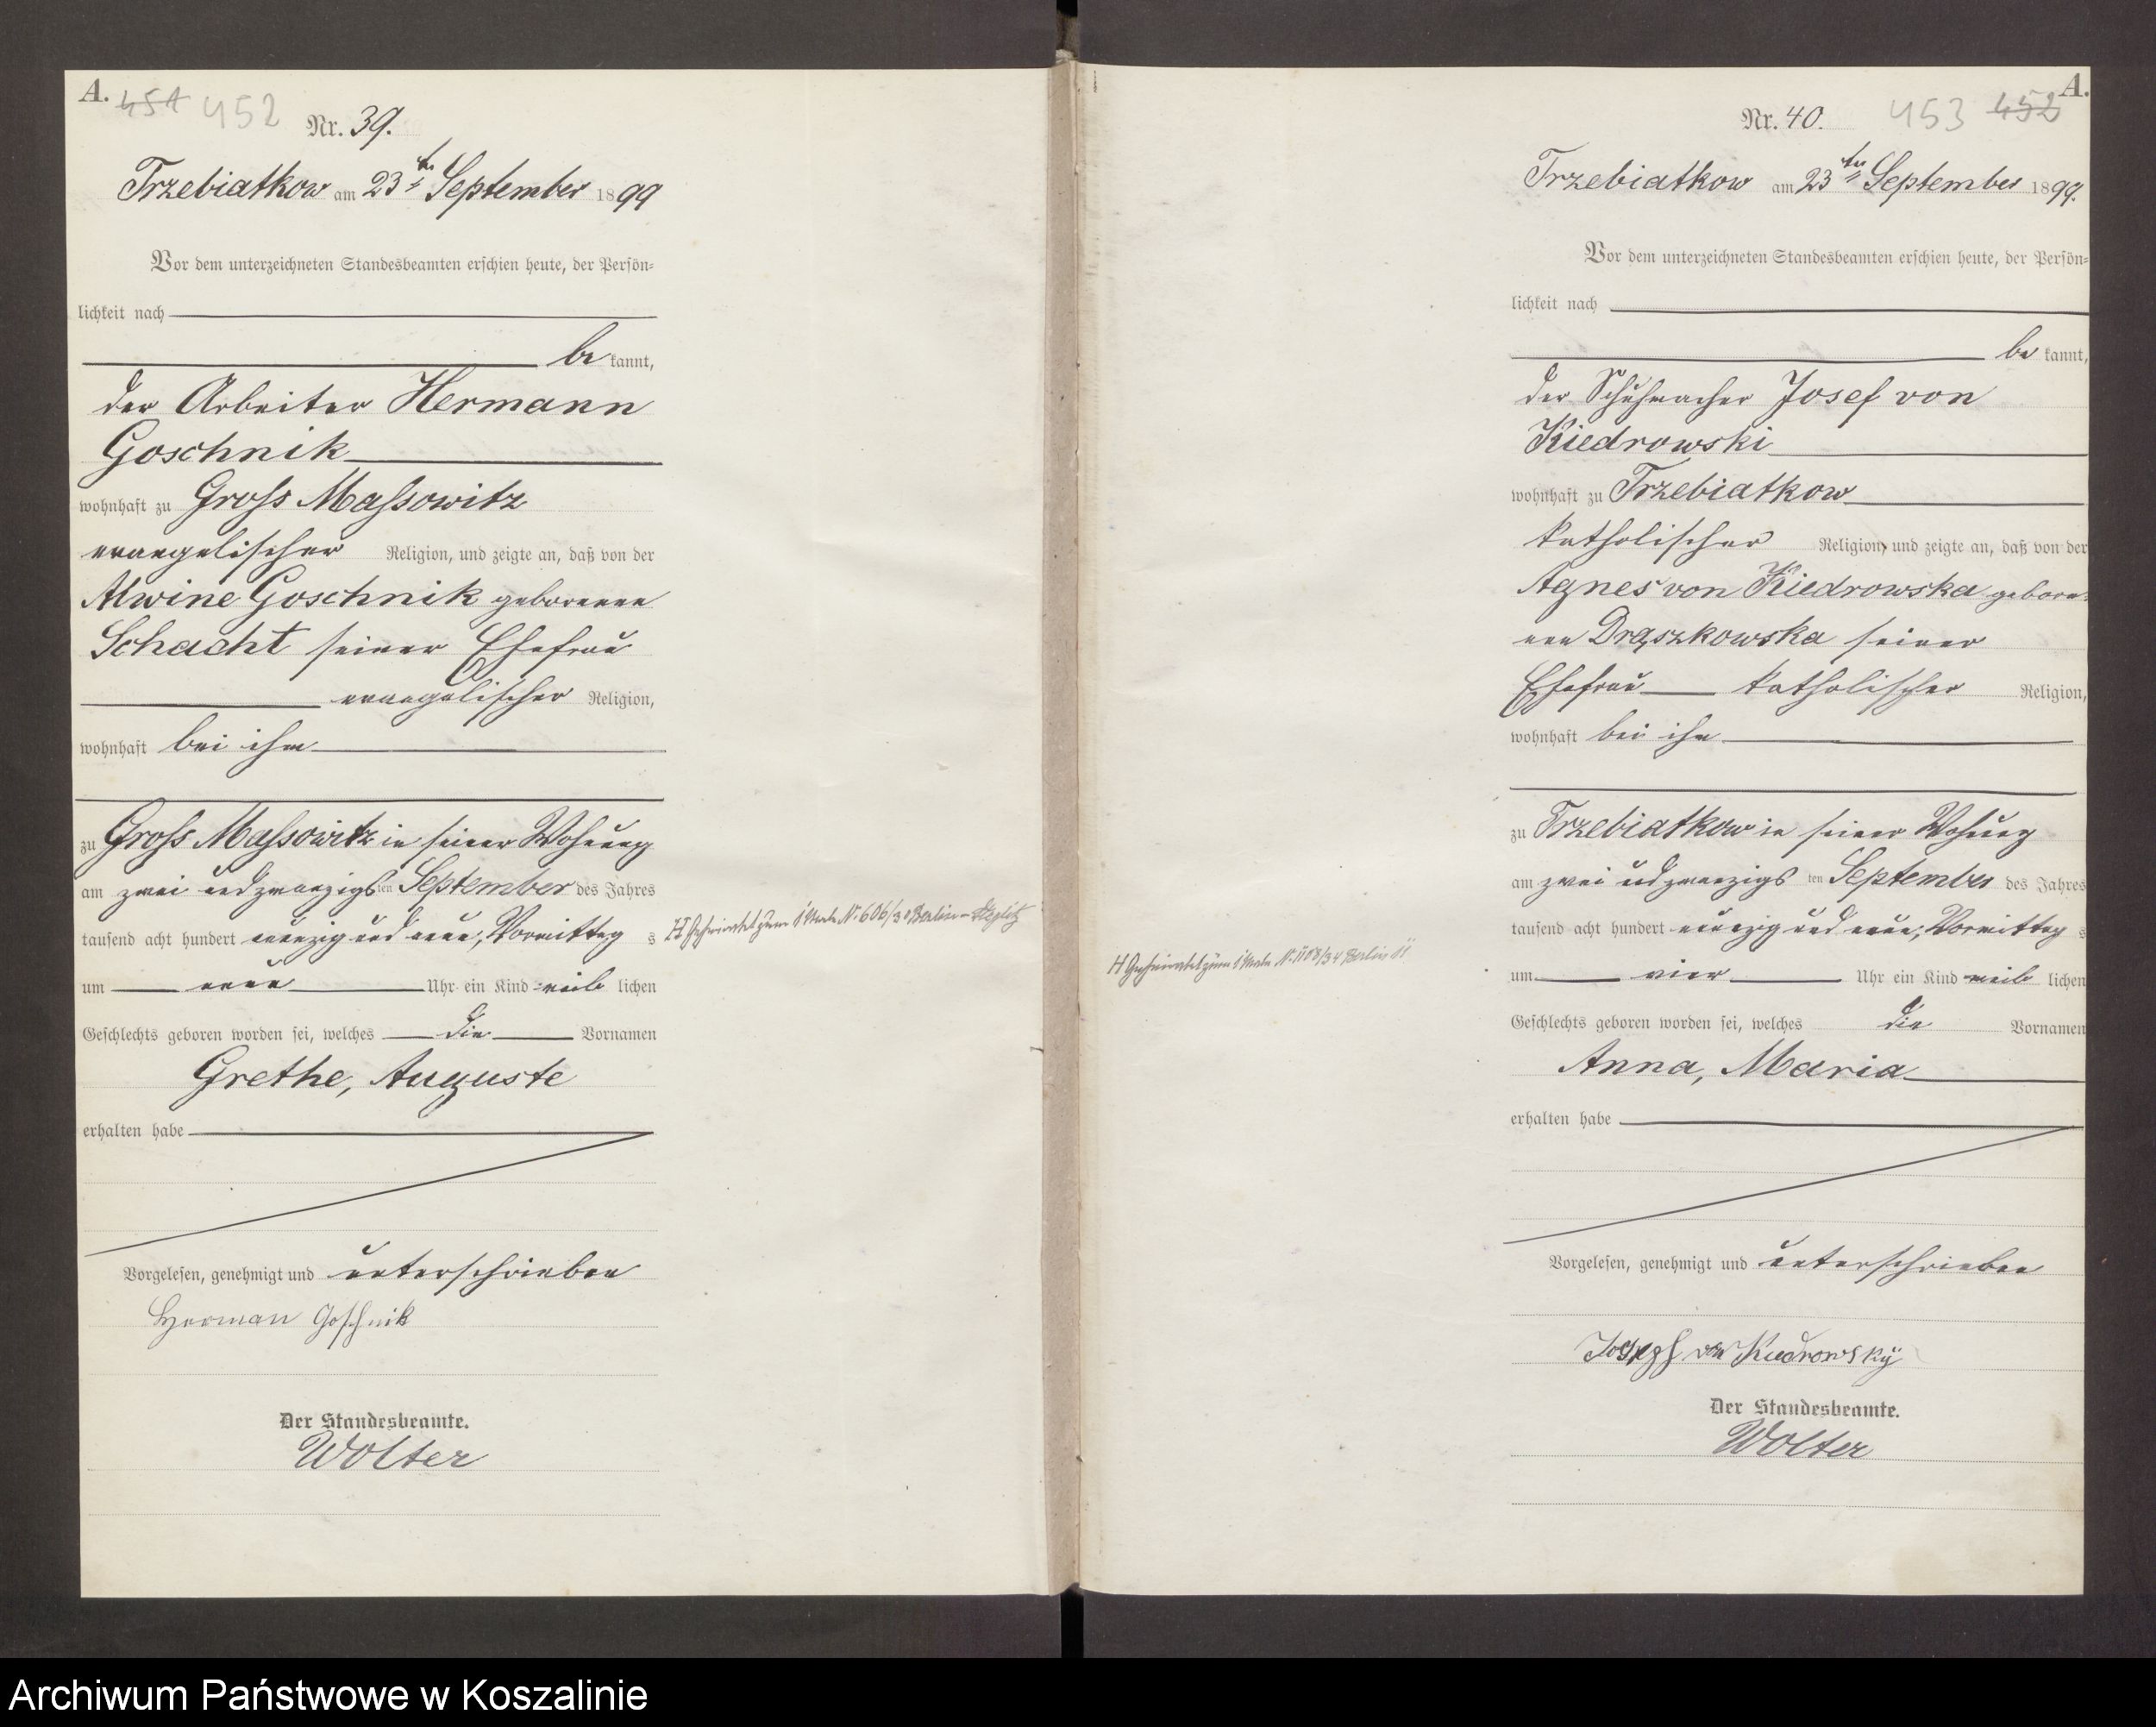 A.
451 452
Nr. 39.
Trzebiatkow am 23ten September 1899
Vor dem unterzeichneten Standesbeamten erschien heute, der Persön-
lichkeit nach
be kannt,
der Arbeiter Hermann
Goschnik
wohnhaft zu Gross Massowitz
evangelischer Religion, und zeigte an, daß von der
Alwine Goschnik geborenen
Schacht seiner Ehefrau
evangelischer Religion,
wohnhaft bei ihm
zu Gross Massowitz in seiner Wohnung
am zwei und zwanzigsten September des Jahres
tausend acht hundert neunzig und neun, Vormittag s
um neun Uhr ein Kind weib lichen
Geschlechts geboren worden sei, welches die Vornamen
Grethe, Auguste
erhalten habe
Vorgelesen, genehmigt und unterschrieben
Herman Goschnik
Der Standesbeamte.
Wolter
H geheiratet zum 1 Male Nr. 606/30 Berlin-Steglitz
A.
453 452
Nr. 40.
Trzebiatkow am 23ten September 1899.
Vor dem unterzeichneten Standesbeamten erschien heute, der Persön-
lichkeit nach
be kannt,
der Schuhmacher Josef von
Kiedrowski
wohnhaft zu Trzebiatkow
katholischer Religion, und zeigte an, daß von der
Agnes von Kiedrowska gebore-
nen Drąszkowska seiner
Ehefrau katholischer Religion,
wohnhaft bei ihm
zu Trzebiatkow in seiner Wohnung
am zwei und zwanzigs ten September des Jahres
tausend acht hundert neunzig und neun, Vormittag s
um vier Uhr ein Kind weib lichen
Geschlechts geboren worden sei, welches die Vornamen
Anna, Maria
erhalten habe
Vorgelesen, genehmigt und unterschrieben
Joseph von Kiedrowsky
Der Standesbeamte.
Wolter
H Geheiratet zum 1 Male Berlin
Archiwum Państwowe w Koszalinie